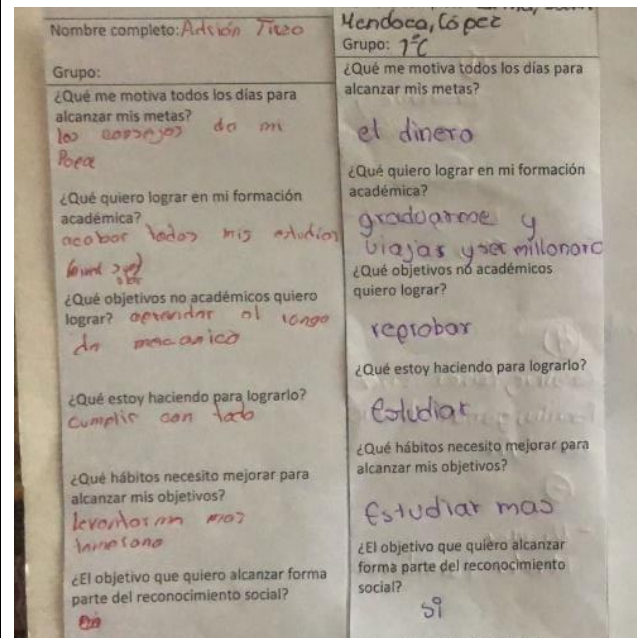 Nombre completo: Adrión Tirzo
Grupo:
¿Qué me motiva todos los días para
alcanzar mis metas?
los consejos da mi
Papa
¿Qué quiero lograr en mi formación
académica?
acabar todos mis estudios
¿Qué objetivos no académicos quiero
lograr?
da mecanico
¿Qué estoy haciendo para lograrlo?
Cumplir con todo
¿Qué hábitos necesito mejorar para
alcanzar mis objetivos?
levantarm mas
¿El objetivo que quiero alcanzar forma
parte del reconocimiento social?
Mendoza, López
Grupo: 1°C
¿Qué me motiva todos los días para
alcanzar mis metas?
el dinero
¿Qué quiero lograr en mi formación
académica?
graduarme y
viajar y ser millonario
¿Qué objetivos no académicos
quiero lograr?
reprobar
¿Qué estoy haciendo para lograrlo?
Estudiar
¿Qué hábitos necesito mejorar para
alcanzar mis objetivos?
Estudiar mas
¿El objetivo que quiero alcanzar
forma parte del reconocimiento
social?
si